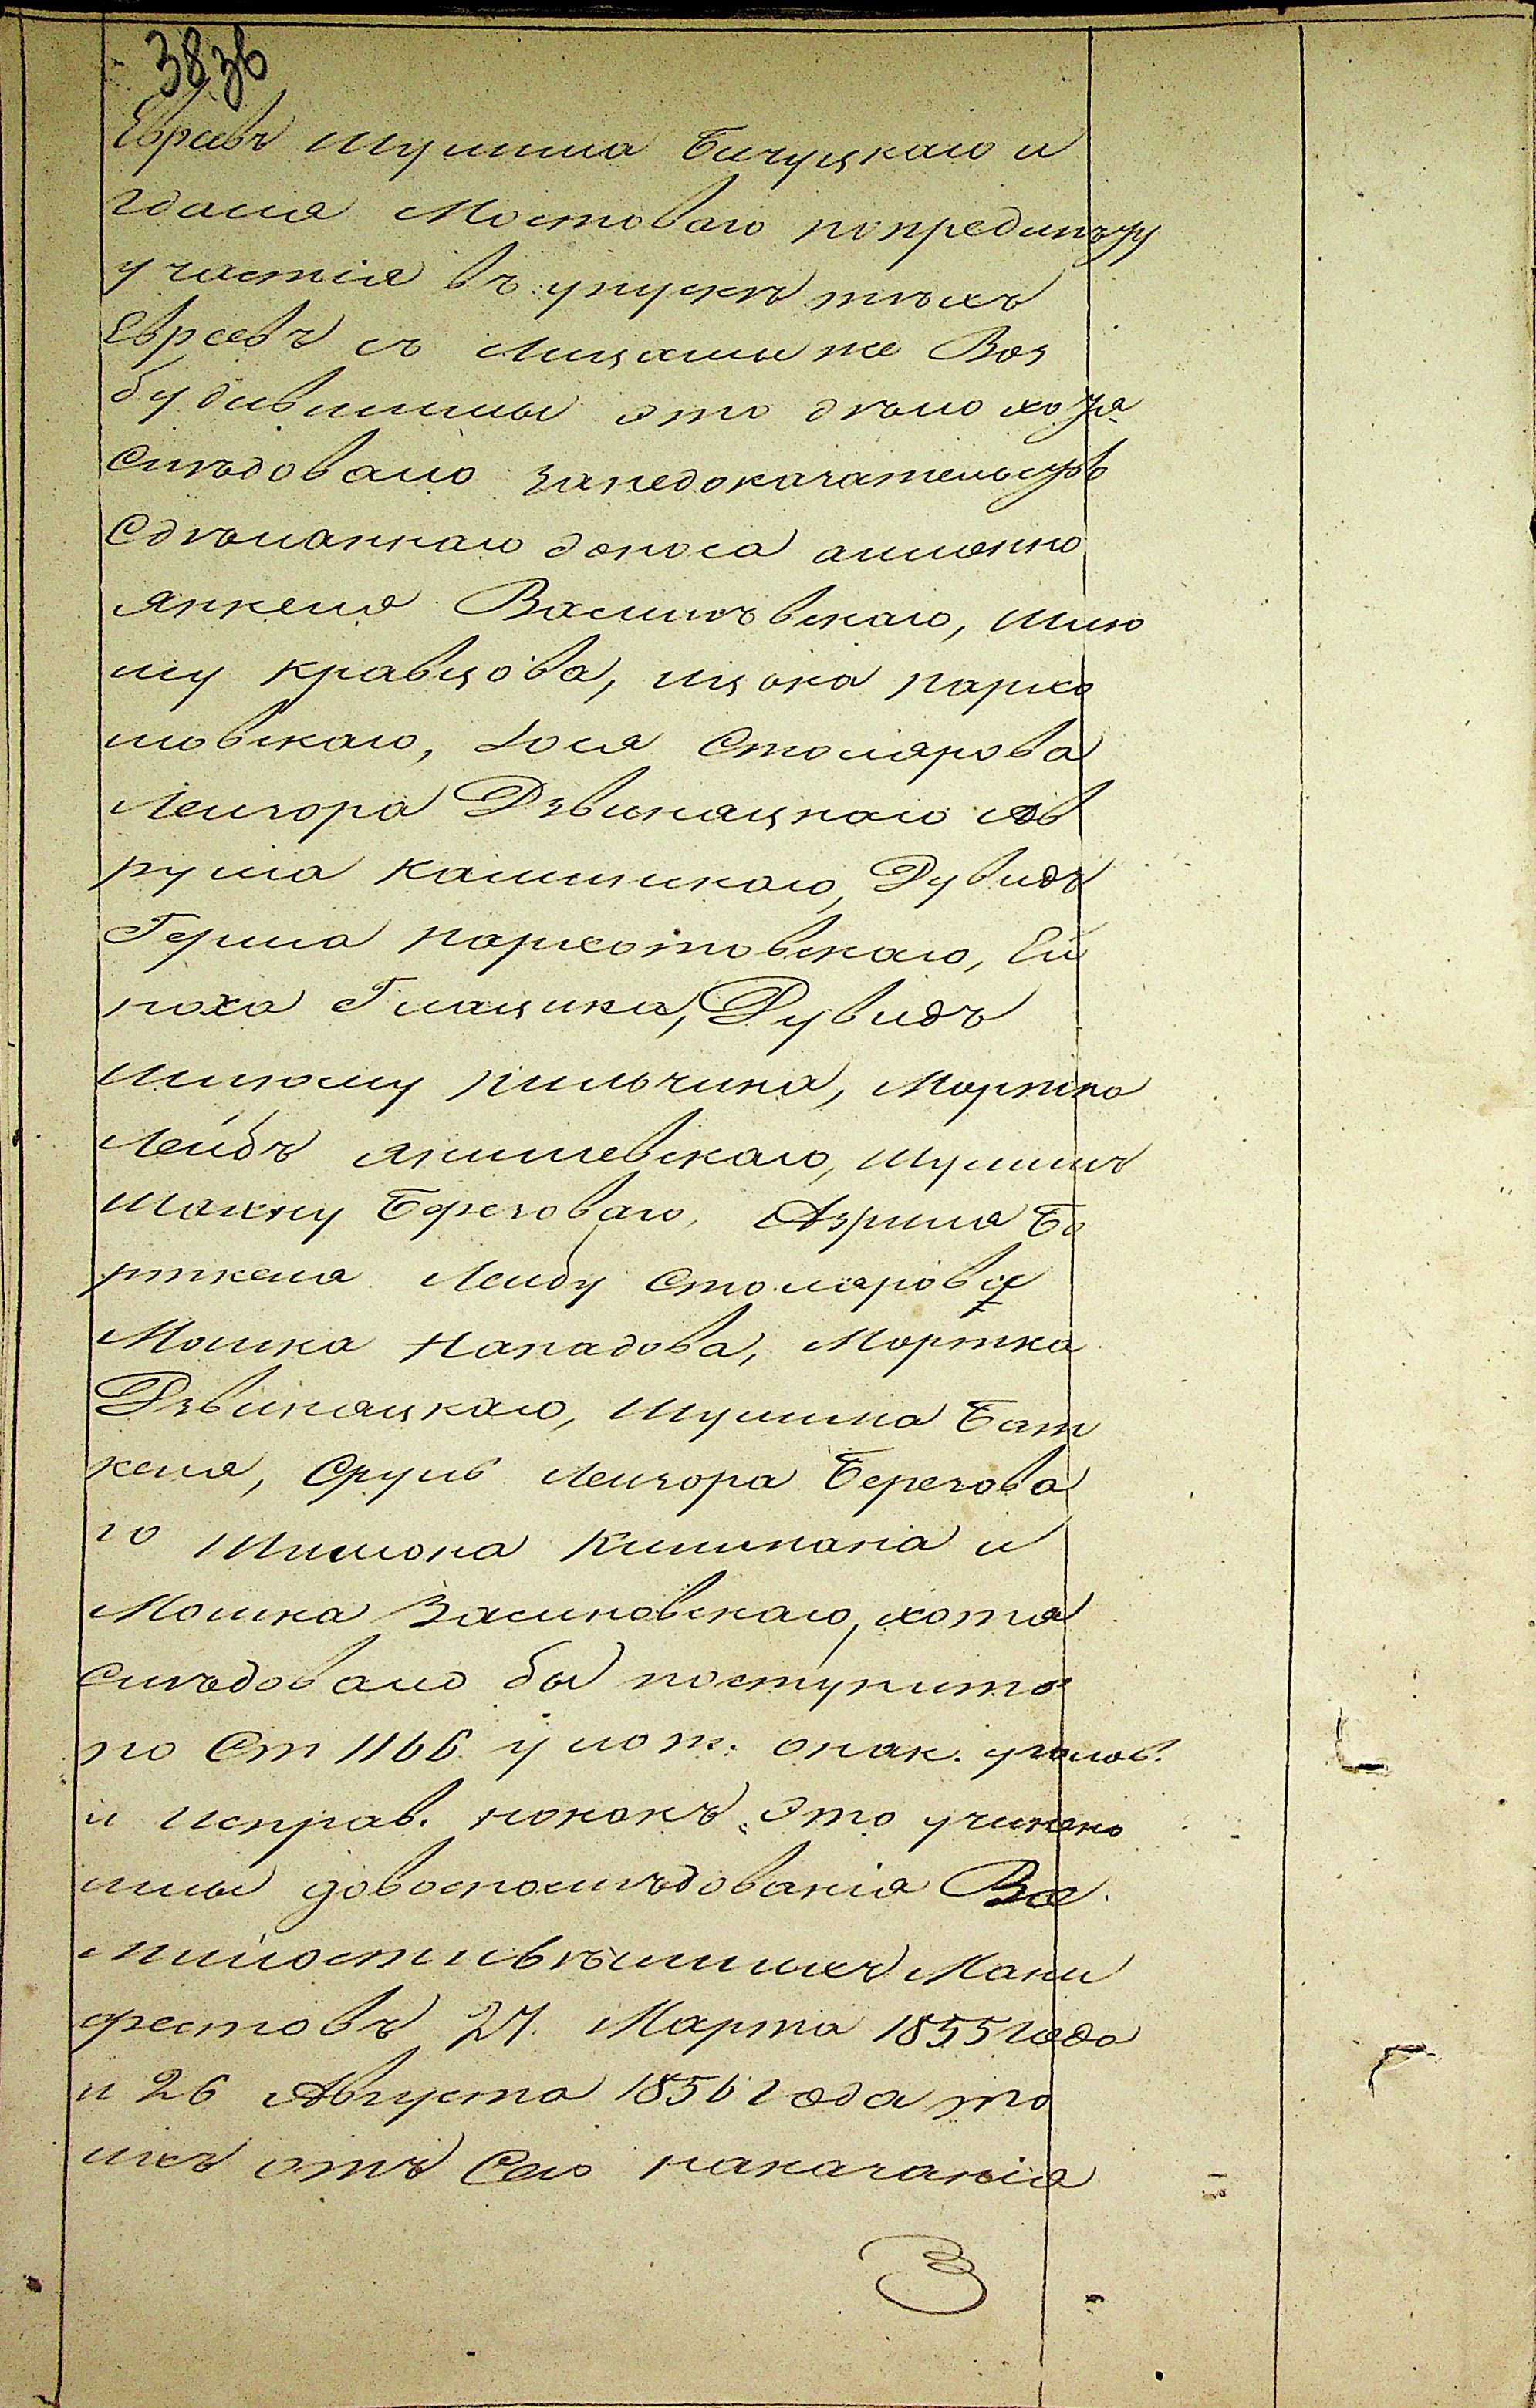 383в
Евреевъ Шулима Бичуцкаго и
гдаля Мостоваго попредмѣту
участія въ упускѣ тѣхъ
Евреевъ съ Лицами же Воз
будившими это дѣло хотя
Слѣдовало занедоказательство
Сдѣланнаго доноса аименно
Янкеля Василевскаго, Шлю
му Кравцова, ицока пархо
мовскаго, Іося Столярова
Лейзора Дзвиняцкаго Аб
рума Калинскаго, Дувидъ
Герша пархомовскаго, Ей
ноха Глацика, Дувидъ
Шлюму пильчика, Мортко
Лейбъ Янишевскаго, Шулимъ
Шахну Березоваго, Азриля Бо
рткеля Лейбу Столярова
Мошка Нападова, Мортка
Дзвиняцкаго, Шулима Бат
келя, Сруль Лейзора Березова
го Шимона Кишмана и
Мошка Засиковскаго, хотя
слѣдовало бы поступить
по Ст 1166 улож: онак. уголов.
и исправ. нокакъ это учинено
ими довоспослѣдованія Все
милостивѣйшихъ Мани
фестовъ 27. Марта 1855 года
и 26 Августа 1856 года то
ихъ отъ Сего наказанія